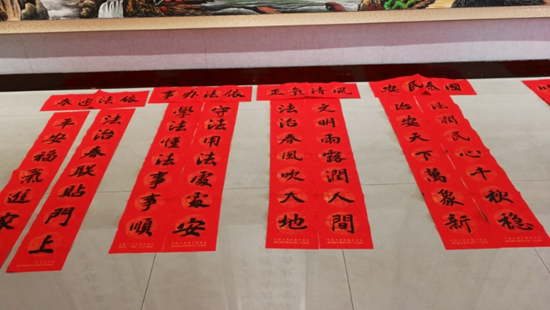 依法迎春
法治春联貼門上
平安福氣進家
依法办事
守法用法處處安
學法懂法事事順
風清氣正
文明雨露潤人間
法治春風吹大地
國泰民安
法潤民心千秋稳
治安天下萬象新